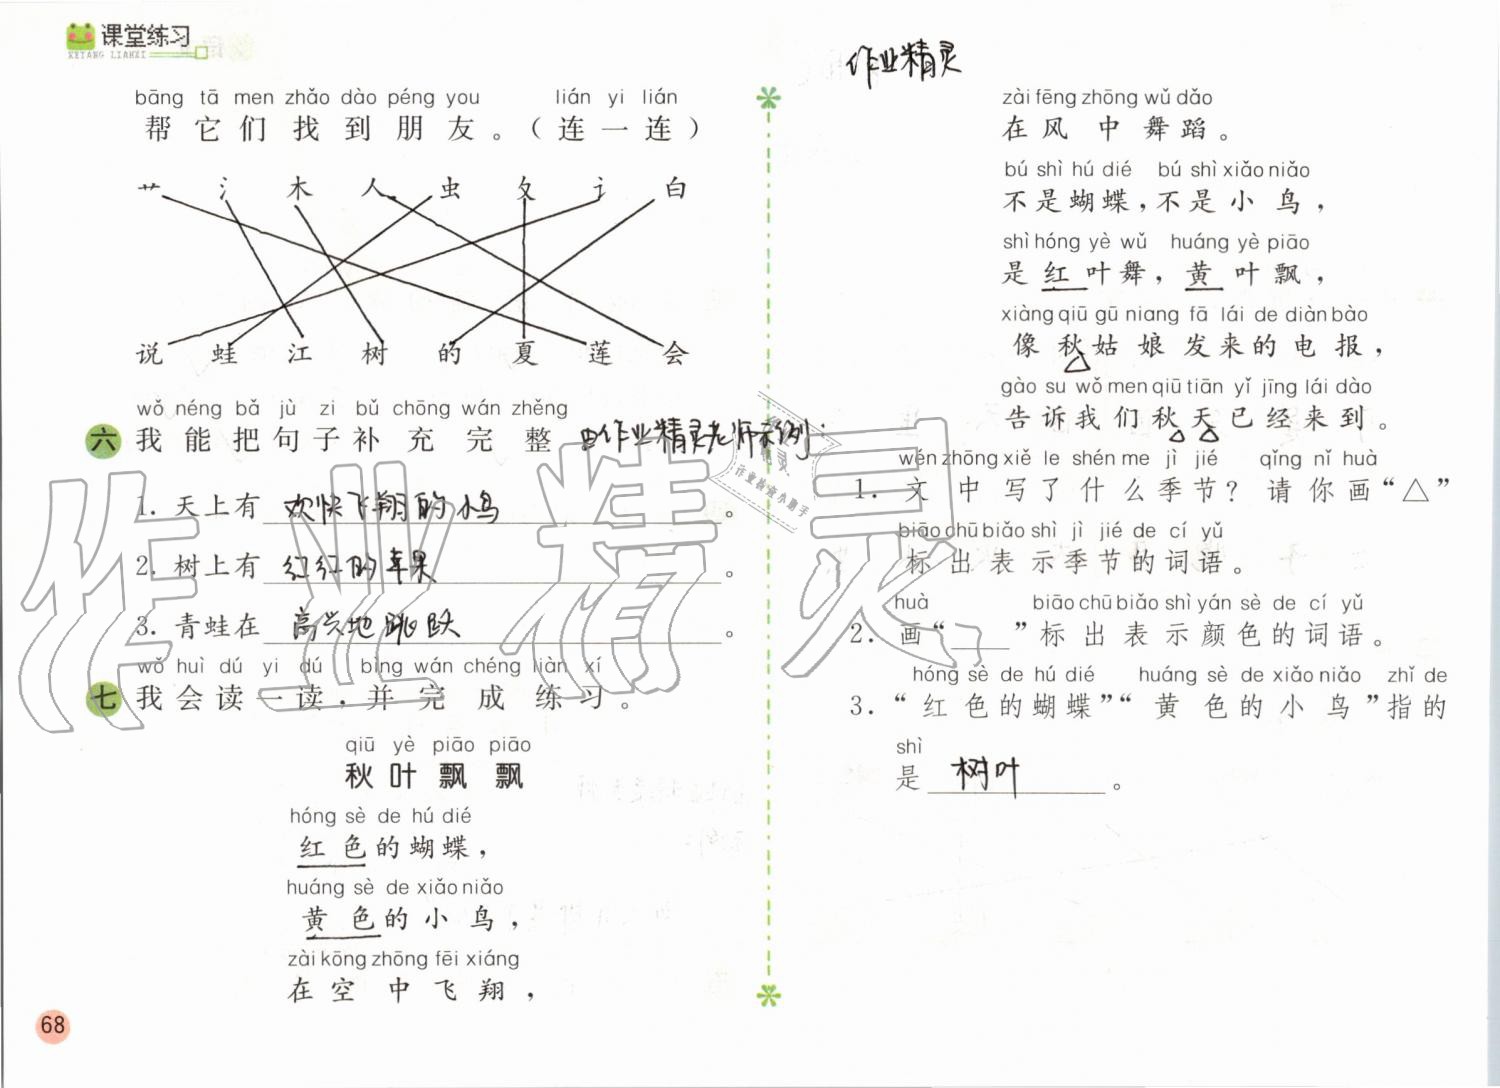 课堂练习
KETANG LIANXI
bāng tā men zhǎo dào péng you lián yi lián
帮它们找到朋友。（连一连）
艹 氵 木 人 虫 夂 讠 白
说 蛙 江 树 的 夏 莲 会
wǒ néng bǎ jù zi bǔ chōng wán zhěng
六 我能把句子补充完整。作业精灵老师示例：
1. 天上有 欢快飞翔的小鸟 。
2. 树上有 红红的苹果 。
3. 青蛙在 高兴地跳跃 。
wǒ huì dú yi dú bìng wán chéng liàn xí
七 我会读一读，并完成练习。
qiū yè piāo piāo
秋叶飘飘
hóng sè de hú dié
红色的蝴蝶，
huáng sè de xiǎo niǎo
黄色的小鸟，
zài kōng zhōng fēi xiáng
在空中飞翔，
68
作业精灵
zài fēng zhōng wǔ dǎo
在风中舞蹈。
bú shì hú dié bú shì xiǎo niǎo
不是蝴蝶，不是小鸟，
shì hóng yè wǔ huáng yè piāo
是红叶舞，黄叶飘，
xiàng qiū gū niang fā lái de diàn bào
像秋姑娘发来的电报，
gào su wǒ men qiū tiān yǐ jīng lái dào
告诉我们秋天已经来到。
wén zhōng xiě le shén me jì jié qǐng nǐ huà
1. 文中写了什么季节？请你画“△”
biāo chū biǎo shì jì jié de cí yǔ
标出表示季节的词语。
huà biāo chū biǎo shì yán sè de cí yǔ
2. 画“____”标出表示颜色的词语。
hóng sè de hú dié huáng sè de xiǎo niǎo zhǐ de
3. “红色的蝴蝶”“黄色的小鸟”指的
shì
是 树叶 。
作业精灵